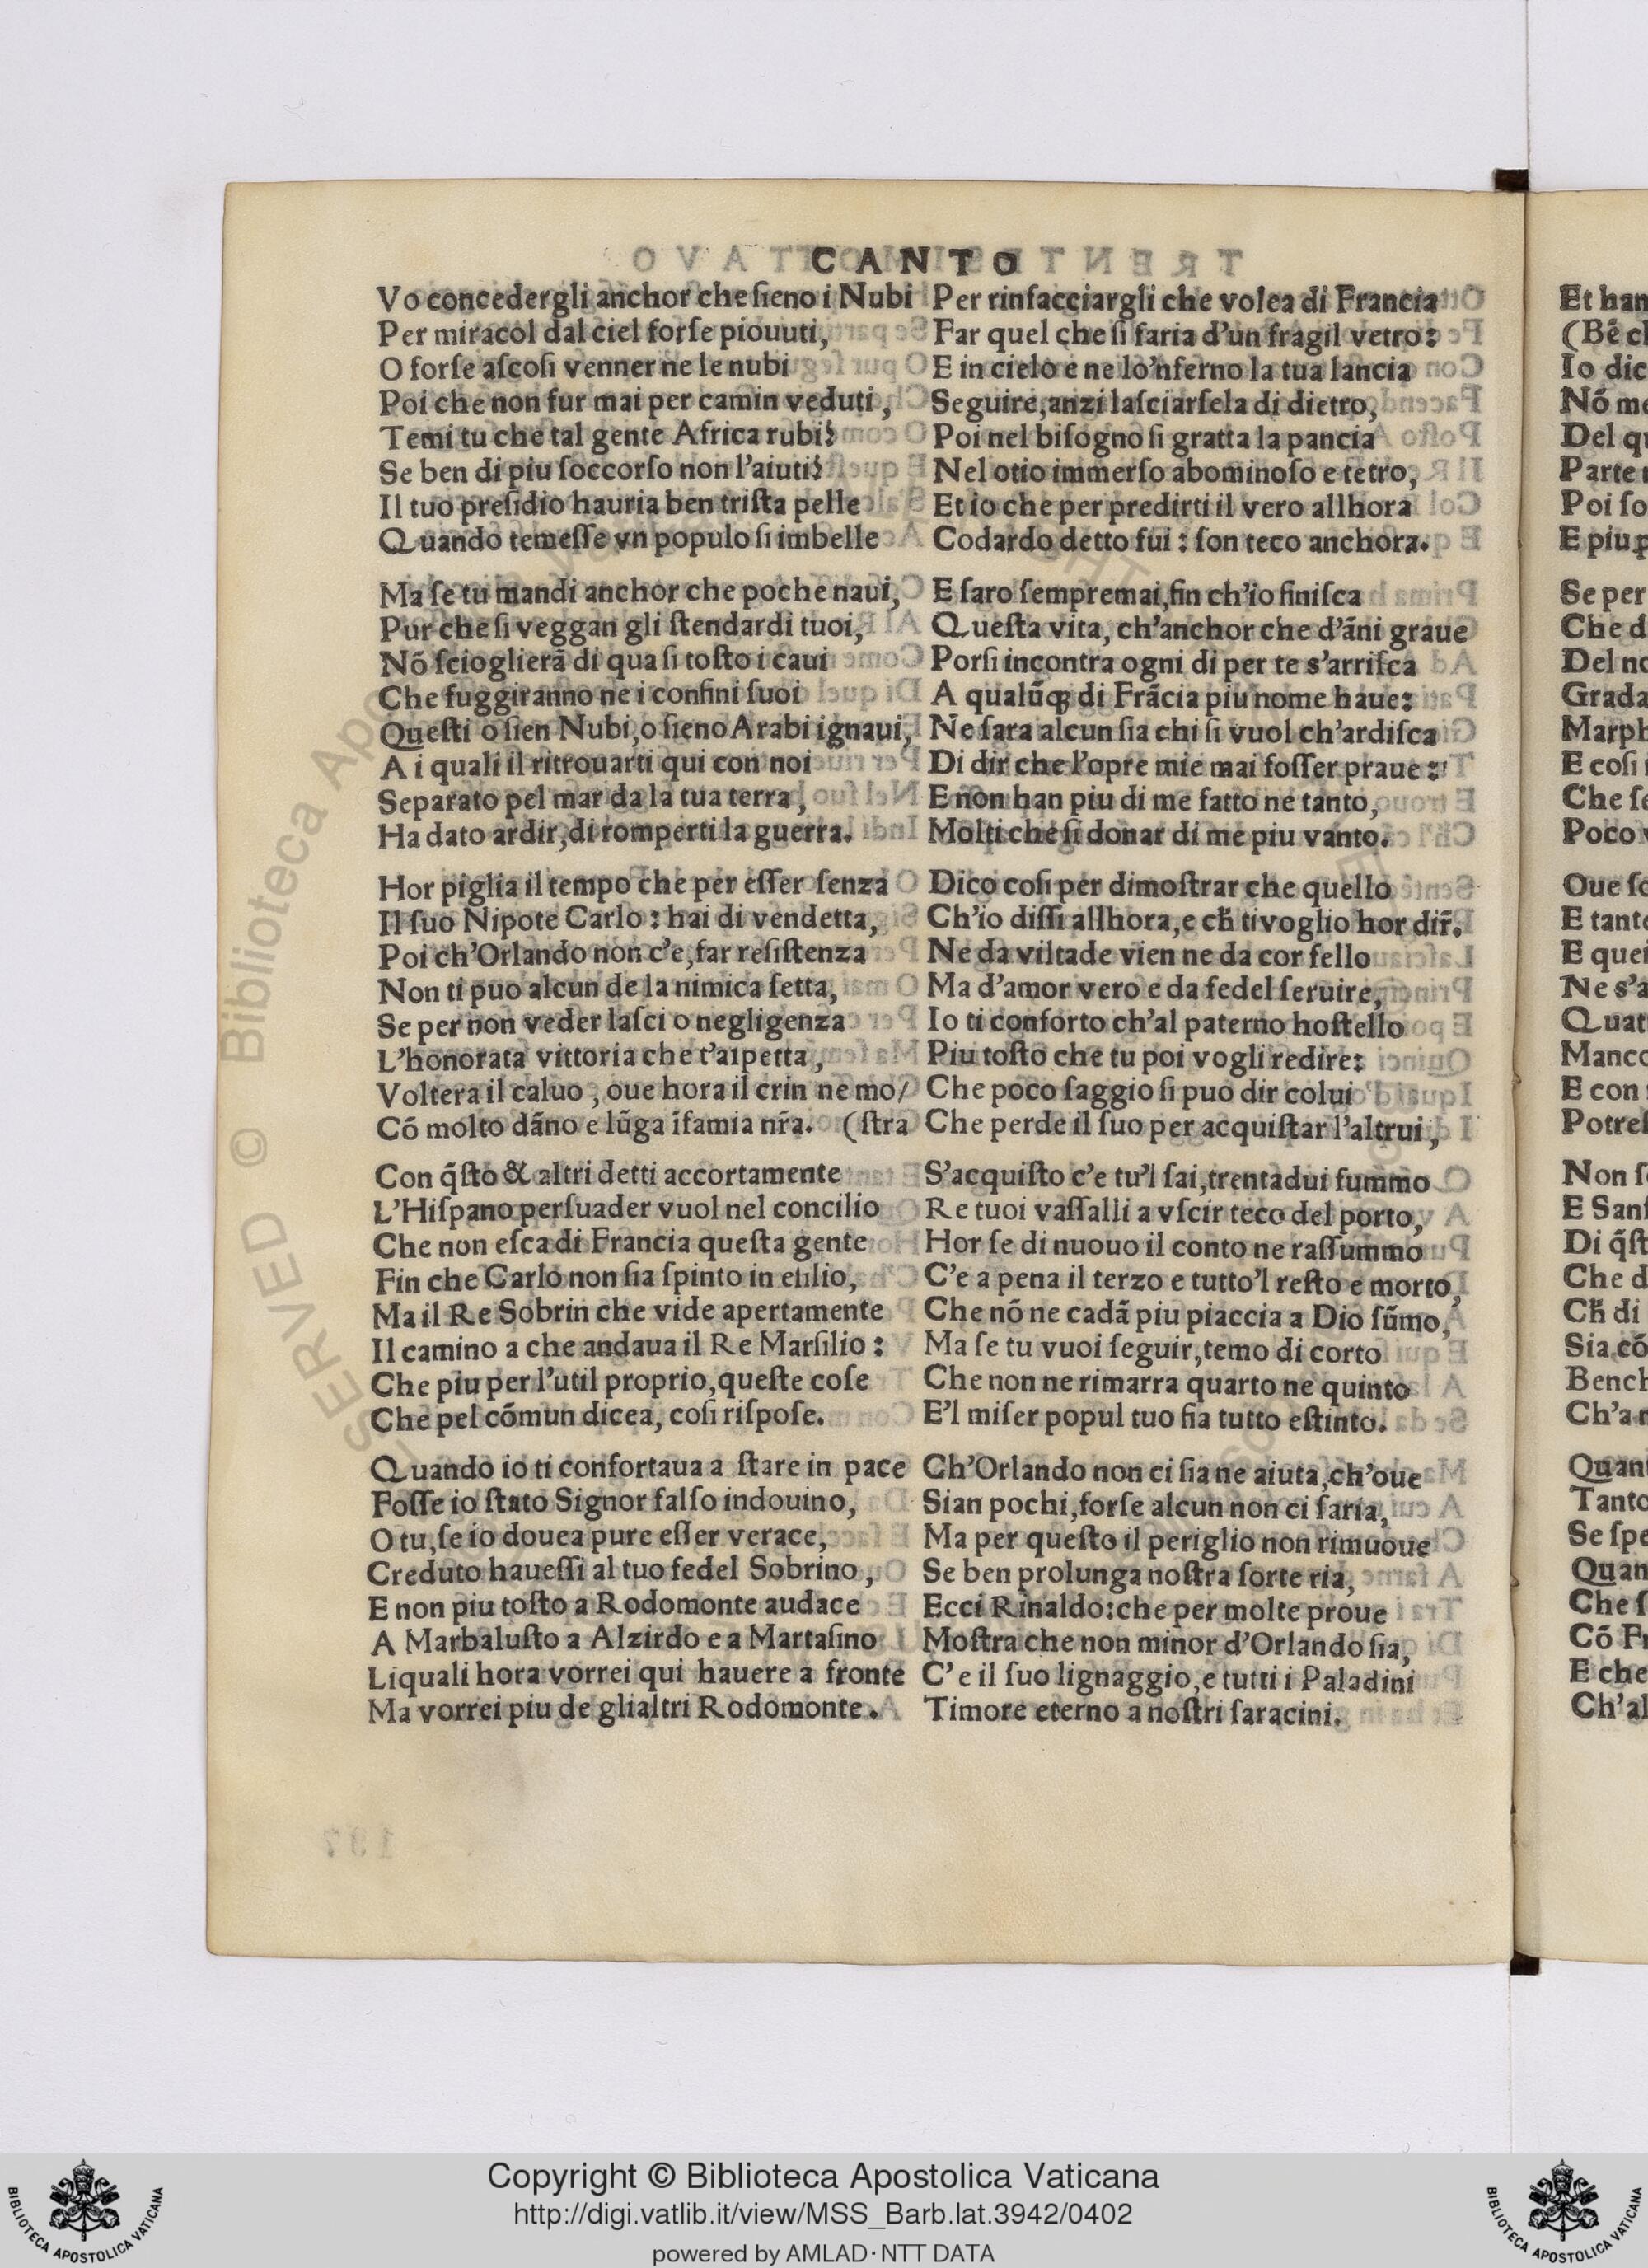 CANTO
Vo concedergli anchor che ſieno i Nubi
Per miracol dal ciel forſe piouuti,
O forſe aſcoſi venner ne le nubi
Poi che non fur mai per camin veduti,
Temi tu che tal gente Africa rubi?
Se ben di piu ſoccorſo non l'aiuti?
Il tuo preſidio hauria ben triſta pelle
Quando temeſſe vn populo ſi imbelle
Ma ſe tu mandi anchor che poche naui,
Pur che ſi veggan gli ſtendardi tuoi,
Nõ ſcioglierã di qua ſi toſto i caui
Che fuggiranno ne i confini ſuoi
Queſti o ſien Nubi, o ſieno Arabi ignaui,
A i quali il ritrouarti qui con noi
Separato pel mar da la tua terra,
Ha dato ardir, di romperti la guerra.
Hor piglia il tempo che per eſſer ſenza
Il ſuo Nipote Carlo: hai di vendetta,
Poi ch'Orlando non c'e, far reſiſtenza
Non ti puo alcun de la nimica ſetta,
Se per non veder laſci o negligenza
L'honorata vittoria che t'aſpetta,
Voltera il caluo, oue hora il crin ne mo/
Cõ molto dãno e lũga ĩfamia nr̃a. (ſtra
Con q̃ſto & altri detti accortamente
L'Hiſpano perſuader vuol nel concilio
Che non eſca di Francia queſta gente
Fin che Carlo non ſia ſpinto in eſilio,
Ma il Re Sobrin che vide apertamente
Il camino a che andaua il Re Marſilio:
Che piu per l'util proprio, queſte coſe
Che pel cõmun dicea, coſi riſpoſe.
Quando io ti confortaua a ſtare in pace
Foſſe io ſtato Signor falſo indouino,
O tu, ſe io douea pure eſſer verace,
Creduto haueſſi al tuo fedel Sobrino,
E non piu toſto a Rodomonte audace
A Marbaluſto a Alzirdo e a Martaſino
Li quali hora vorrei qui hauere a fronte
Ma vorrei piu de gli altri Rodomonte.
Per rinfacciargli che volea di Francia
Far quel che ſi faria d'un fragil vetro:
E in cielo e ne lo'nferno la tua lancia
Seguire, anzi laſciarſela di dietro,
Poi nel biſogno ſi gratta la pancia
Nel otio immerſo abominoſo e tetro,
Et io che per predirti il vero allhora
Codardo detto fui: ſon teco anchora.
E ſaro ſempremai, fin ch'io finiſca
Queſta vita, ch'anchor che d'ãni graue
Porſi incontra ogni di per te s'arriſca
A qualũqꝫ di Frãcia piu nome haue:
Ne ſara alcun ſia chi ſi vuol ch'ardiſca
Di dir che l'opre mie mai foſſer praue:
E non han piu di me fatto ne tanto,
Molti che ſi donar di me piu vanto.
Dico coſi per dimoſtrar che quello
Ch'io diſſi allhora, e cħ ti voglio hor dir̃.
Ne da viltade vien ne da cor fello
Ma d'amor vero e da fedel ſeruire,
Io ti conforto ch'al paterno hoſtello
Piu toſto che tu poi vogli redire:
Che poco ſaggio ſi puo dir colui
Che perde il ſuo per acquiſtar l'altrui,
S'acquiſto c'e tu'l ſai, trentadui fummo
Re tuoi vaſſalli a vſcir teco del porto,
Hor ſe di nuouo il conto ne raſſummo
C'e a pena il terzo e tutto'l reſto e morto,
Che nõ ne cadã piu piaccia a Dio ſũmo,
Ma ſe tu vuoi ſeguir, temo di corto
Che non ne rimarra quarto ne quinto
E'l miſer popul tuo fia tutto eſtinto.
Ch'Orlando non ci ſia ne aiuta, ch'oue
Sian pochi, forſe alcun non ci ſaria,
Ma per queſto il periglio non rimuoue
Se ben prolunga noſtra ſorte ria,
Ecci Rinaldo: che per molte proue
Moſtra che non minor d'Orlando ſia,
C'e il ſuo lignaggio, e tutti i Paladini
Timore eterno a noſtri ſaracini.
Et han
(Bẽ ch
Io dic
Nõ me
Del qu
Parte
Poi ſo
E piu
Se per
Che d
Del no
Grada
Marph
E coſi
Che ſe
Poco v
Oue ſo
E tante
E quei
Ne s'a
Quat
Manco
E con
Potreſ
Non ſ
E Sanſ
Di q̃ſt
Che d
Cħ di
Sia cõ
Bench
Ch'a
Quan
Tanto
Se ſpe
Quan
Che ſ
Cõ Fr
E che
Ch'al
Copyright © Biblioteca Apostolica Vaticana
http://digi.vatlib.it/view/MSS_Barb.lat.3942/0402
powered by AMLAD·NTT DATA
BIBLIOTECA APOSTOLICA VATICANA
BIBLIOTECA APOSTOLICA VATICANA